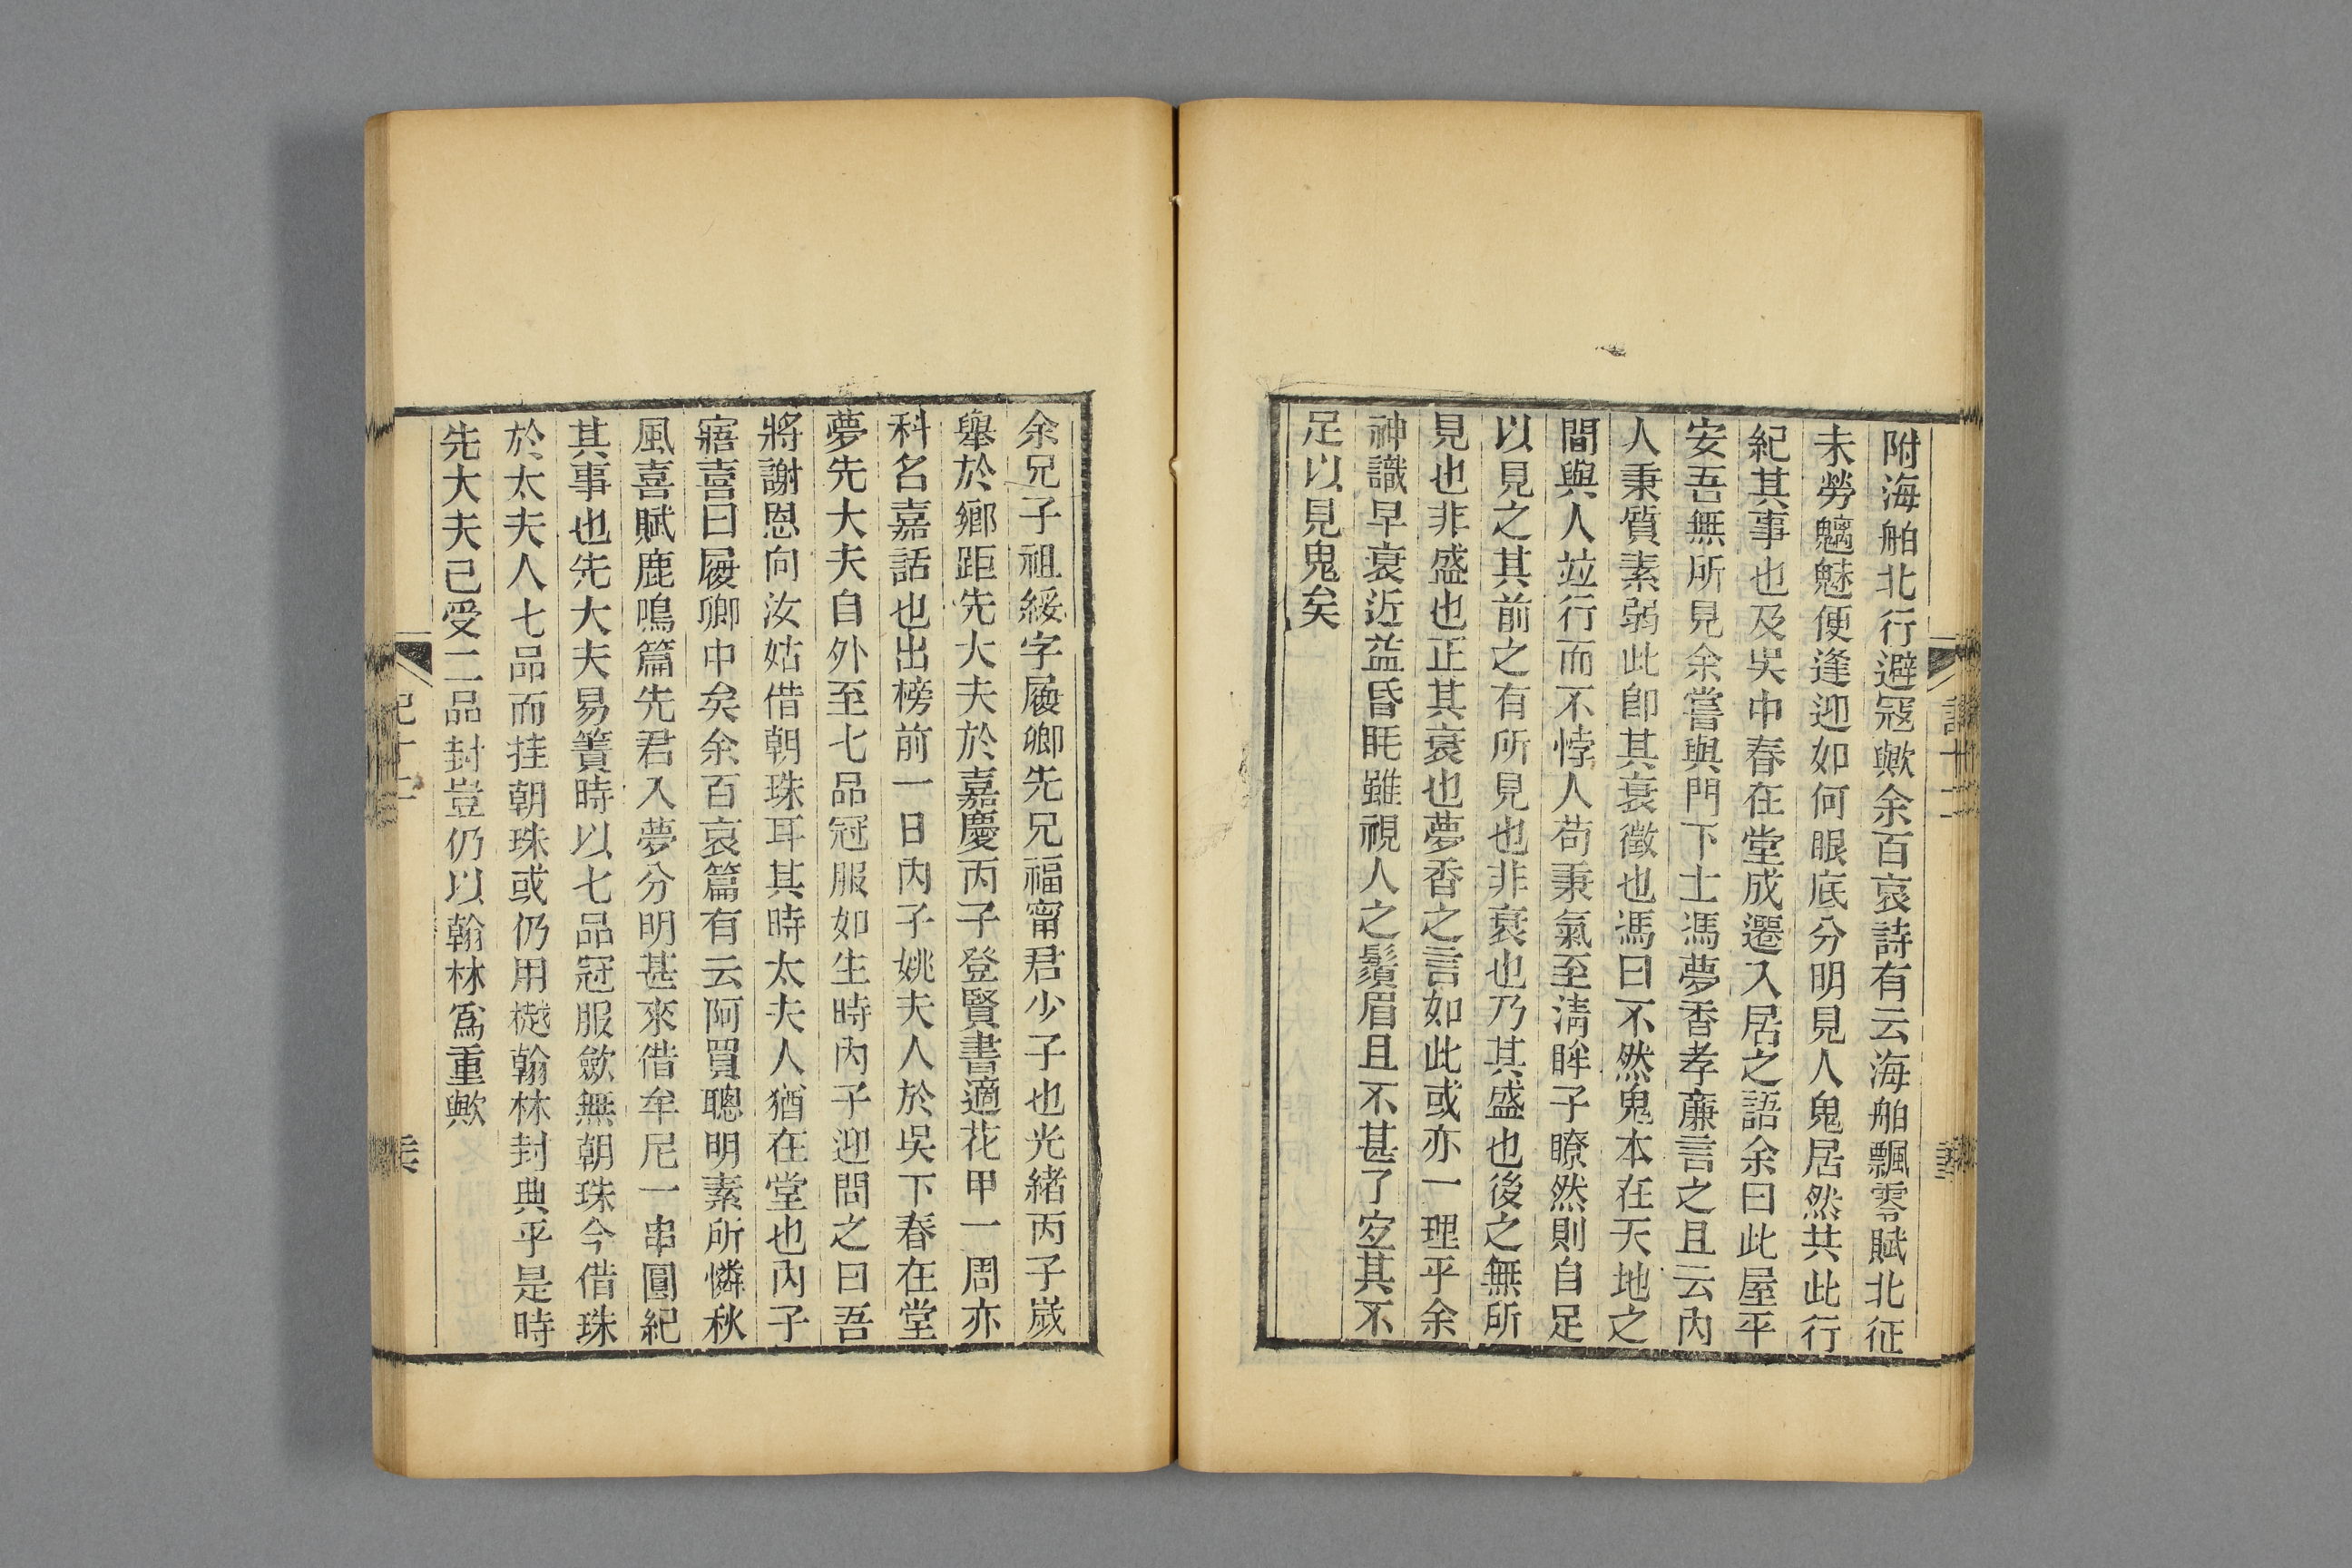 附海舶北行避寇歟余百哀詩有云海舶飄零賦北征
未勞魑魅便逢迎如何眼底分明見人鬼居然共此行
紀其事也及吳中春在堂成遷入居之語余曰此屋平
安吾無所見余嘗與門下士馮夢香孝廉言之且云內
人秉質素弱此卽其衰徵也馮曰不然鬼本在天地之
間與人竝行而不悖人苟秉氣至淸眸子瞭然則自足
以見之其前之有所見也非衰也乃其盛也後之無所
見也非盛也正其衰也夢香之言如此或亦一理乎余
神識早衰近益昏眊雖視人之鬚眉且不甚了㝎其不
足以見鬼矣
余兄子祖綏字履卿先兄福甯君少子也光緒丙子歲
舉於鄉距先大夫於嘉慶丙子登賢書適花甲一周亦
科名嘉話也出榜前一日內子姚夫人於吳下春在堂
夢先大夫自外至七品冠服如生時內子迎問之曰吾
將謝恩向汝姑借朝珠耳其時太夫人猶在堂也內子
寤喜曰履卿中矣余百哀篇有云阿買聰明素所憐秋
風喜賦鹿鳴篇先君入夢分明甚來借牟尼一串圓紀
其事也先大夫易簀時以七品冠服歛無朝珠今借珠
於太夫人七品而挂朝珠或仍用檖翰林封典乎是時
先大夫已受二品封豈仍以翰林爲重歟